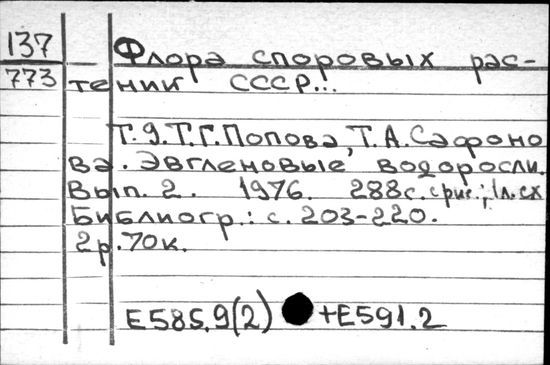 137
773
Флора споровых рас-
тений СССР...
Т.9. Т.Г.Попова, Т.А.Сафоно
ва. Эвгленовые водоросли.
Вып. 2. 1976. 288с. с рис.; 1л.сх
Библиогр.: с. 203-220.
2р.70к.
Е585.9(2) +Е591.2